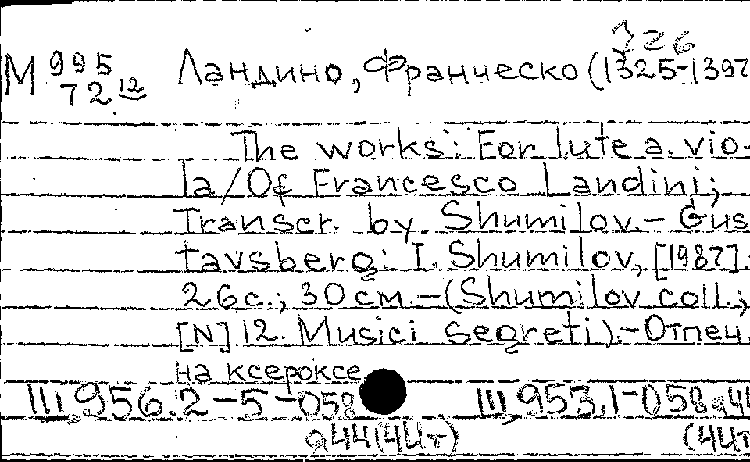 326
М 995 Ландино, Франческо (1325-1397
72 12
The works: For lute a. vio-
la / Of Francesco Landini;
Transcr. by Shumilov.- Gus
tavsberg: I. Shumilov, [1987].
26с.; 30см.-(Shumilov coll.;
[N] 12. Musici segreti).-Отпеч.
на ксероксе
III,956.2-5-058 III,953,1-058.44
а44(4Шт) (4Шт